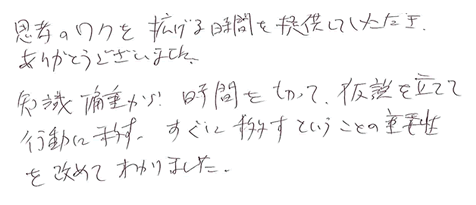 思考のワクを拡げる時間を提供していただき、
ありがとうございました。
知識偏重から、時間を切って、仮説を立てて
行動に移す。すぐに移すということの重要性
を改めてわかりました。